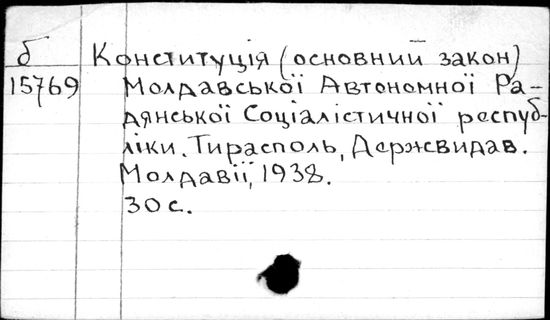 б Конституція (основний закон)
15769 Молдавської Автономної Ра-
дянської Соціалістичної респуб-
ліки. Тирасполь, Держвидав.
Молдавії, 1938.
30 с.